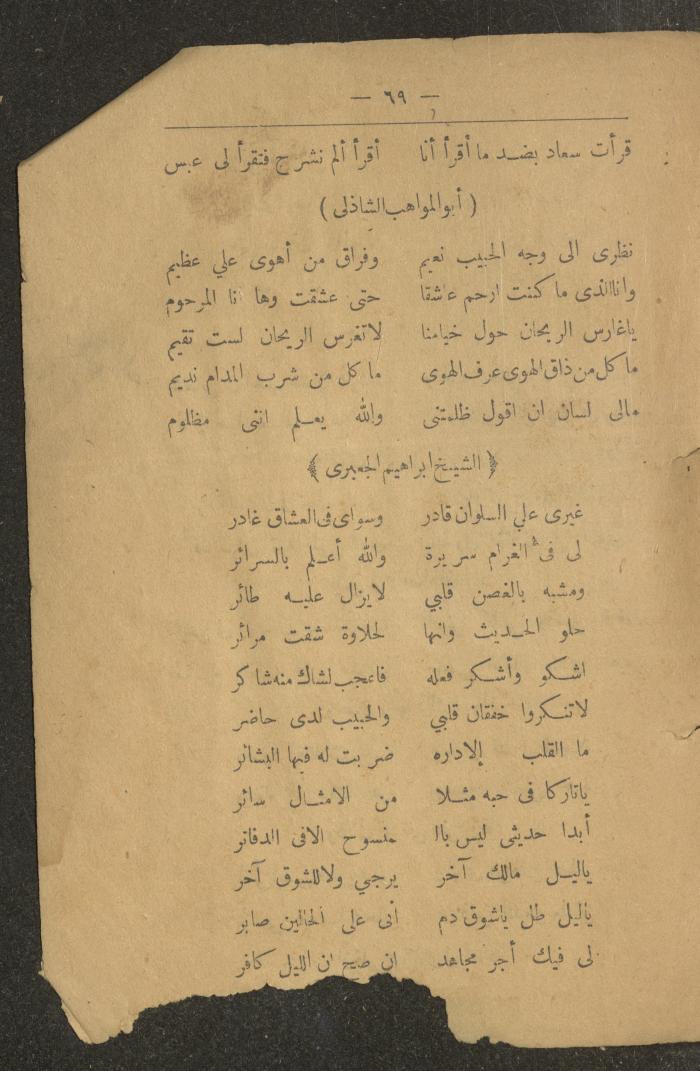 — ٦٩ —
قرأت سعاد بضد ما أقرأ أنا أقرأ ألم نشرح فتقرأ لى عبس
( أبو المواهب الشاذلى )
نظرى الى وجه الحبيب نعيم وفراق من أهوى علي عظيم
وانا الذى ما كنت ارحم عاشقا حتى عشقت وها انا المرحوم
ياغارس الريحان حول خيامنا لاتغرس الريحان لست تقيم
ما كل من ذاق الهوى عرف الهوى ما كل من شرب المدام نديم
مالى لسان ان اقول ظلمتنى والله يعلم اننى مظلوم
﴿ الشيخ ابراهيم الجعبرى ﴾
غيرى علي السلوان قادر وسواى فى العشاق غادر
لى فى الغرام سريرة والله أعلم بالسرائر
ومشبه بالغصن قلبي لا يزال عليه طائر
حلو الحديث وانها لحلاوة شقت مرائر
اشكو وأشكر فعله فاعجب لشاك منه شاكر
لاتنكروا خفقان قلبي والحبيب لدى حاضر
ما القلب إلا داره ضربت له فيها البشائر
ياتاركا فى حبه مثلا من الامثال سائر
أبدا حديثى ليس بالا منسوح الافى الدفاتر
ياليل مالك آخر يرجي ولا للشوق آخر
ياليل طل ياشوق دم أنى على الحالين صابر
لى فيك أجر مجاهد ان صح ان الليل كافر